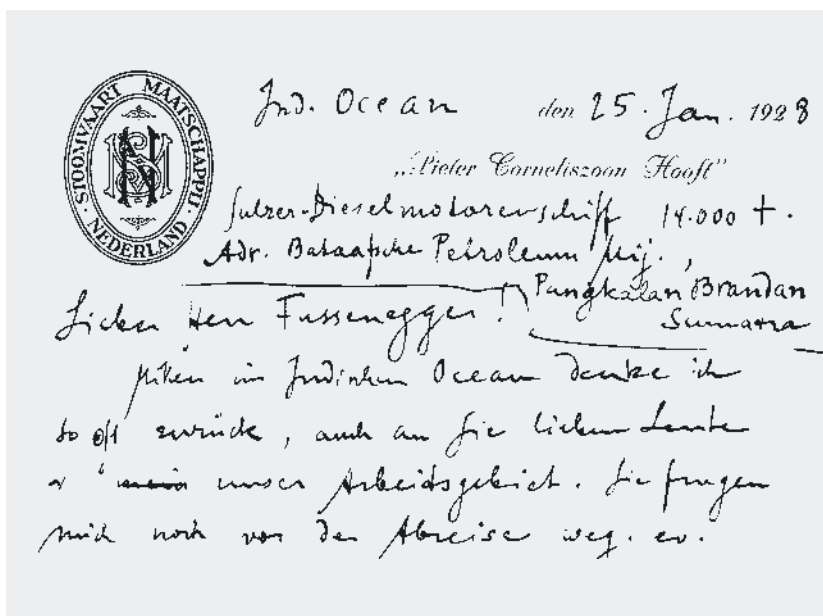 STOOMVAART MAATSCHAPPIJ NEDERLAND
Ind. Ocean den 25. Jan. 1928
„Pieter Corneliszoon Hooft"
Sulzer-Dieselmotorenschiff 14.000 t.
Adr. Bataafsche Petroleum Mij.,
Pangkalan Brandan
Sumatra
Lieber Herr Fussenegger!
Mitten im Indischen Ocean denke ich
so oft zurück, auch an Sie lieben Leute
unser Arbeitsgebiet. Sie frugen
mich noch vor der Abreise weg. ev.